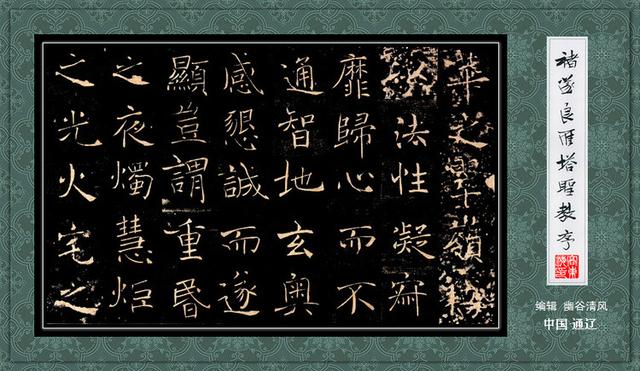 華之翠嶺竊
以法性凝寂
靡歸心而不
通智地玄奧
感懇誠而遂
顯豈謂重昬
之夜燭慧炬
之光火宅之
褚遂良雁塔聖教序
编辑 幽谷清风
中国·通辽